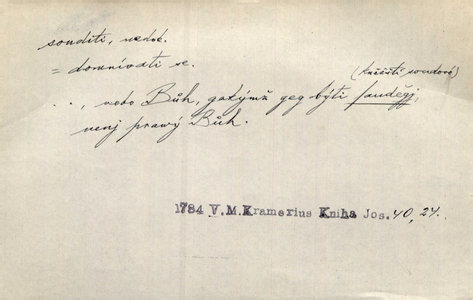 souditi, nedok.
= domnívati se.
(knížští soudové)
..., nebo Bůh, gakýmž geg býti sauděgj,
nenj prawý Bůh.
1784 V.M.Kramerius Kniha Jos. 40, 24.